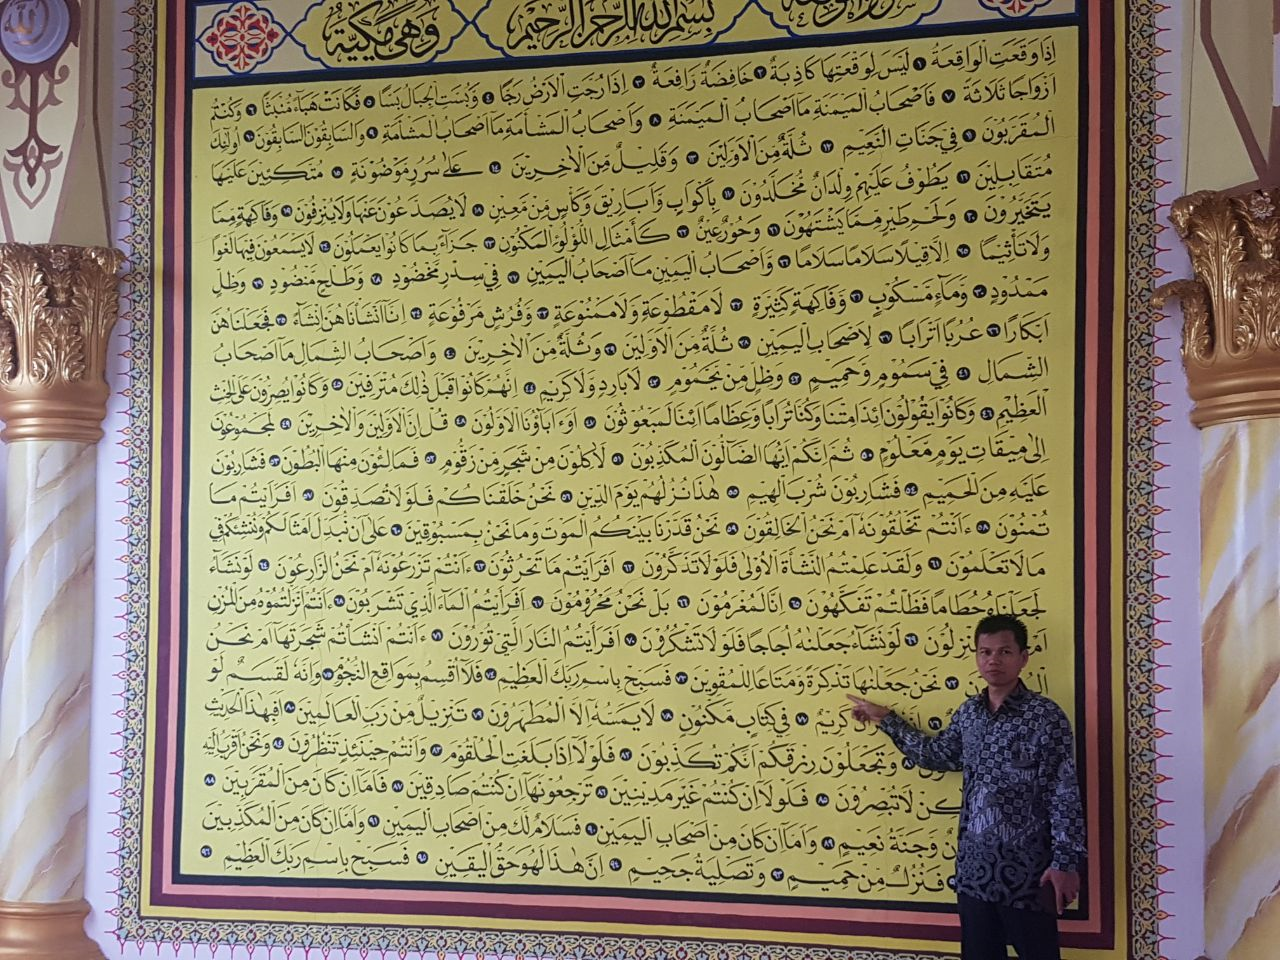 وهي مكية بسم الله الرحمن الرحيم
إِذَا وَقَعَتِ الْوَاقِعَةُ ١ لَيْسَ لِوَقْعَتِهَا كَاذِبَةٌ ٢ خَافِضَةٌ رَافِعَةٌ ٣ إِذَا رُجَّتِ الْاَرْضُ رَجًّا ٤ وَبُسَّتِ الْجِبَالُ بَسًّا ٥ فَكَانَتْ هَبَآءً مُنْبَثًّا ٦ وَكُنْتُمْ
اَزْوَاجًا ثَلَاثَةً ٧ فَاَصْحَابُ الْمَيْمَنَةِ مَآ اَصْحَابُ الْمَيْمَنَةِ ٨ وَاَصْحَابُ الْمَشْاَمَةِ مَآ اَصْحَابُ الْمَشْاَمَةِ ٩ وَالسَّابِقُوْنَ السَّابِقُوْنَ ١٠ اُولٰٓئِكَ
الْمُقَرَّبُوْنَ ١١ فِيْ جَنَّاتِ النَّعِيْمِ ١٢ ثُلَّةٌ مِّنَ الْاَوَّلِيْنَ ١٣ وَقَلِيْلٌ مِّنَ الْاٰخِرِيْنَ ١٤ عَلٰى سُرُرٍ مَّوْضُوْنَةٍ ١٥ مُتَّكِئِيْنَ عَلَيْهَا
مُتَقَابِلِيْنَ ١٦ يَطُوْفُ عَلَيْهِمْ وِلْدَانٌ مُّخَلَّدُوْنَ ١٧ بِاَكْوَابٍ وَّاَبَارِيْقَ وَكَأْسٍ مِّنْ مَّعِيْنٍ ١٨ لَا يُصَدَّعُوْنَ عَنْهَا وَلَا يُنْزِفُوْنَ ١٩ وَفَاكِهَةٍ مِّمَّا
يَتَخَيَّرُوْنَ ٢٠ وَلَحْمِ طَيْرٍ مِّمَّا يَشْتَهُوْنَ ٢١ وَحُوْرٌ عِيْنٌ ٢٢ كَاَمْثَالِ اللُّؤْلُؤِ الْمَكْنُوْنِ ٢٣ جَزَآءً بِمَا كَانُوْا يَعْمَلُوْنَ ٢٤ لَا يَسْمَعُوْنَ فِيْهَا لَغْوًا
وَلَا تَأْثِيْمًا ٢٥ اِلَّا قِيْلًا سَلَامًا سَلَامًا ٢٦ وَاَصْحَابُ الْيَمِيْنِ مَآ اَصْحَابُ الْيَمِيْنِ ٢٧ فِيْ سِدْرٍ مَّخْضُوْدٍ ٢٨ وَطَلْحٍ مَّنْضُوْدٍ ٢٩ وَظِلٍّ
مَّمْدُوْدٍ ٣٠ وَمَآءٍ مَّسْكُوْبٍ ٣١ وَفَاكِهَةٍ كَثِيْرَةٍ ٣٢ لَا مَقْطُوْعَةٍ وَلَا مَمْنُوْعَةٍ ٣٣ وَفُرُشٍ مَّرْفُوْعَةٍ ٣٤ اِنَّآ اَنْشَأْنَاهُنَّ اِنْشَآءً ٣٥ فَجَعَلْنَاهُنَّ
اَبْكَارًا ٣٦ عُرُبًا اَتْرَابًا ٣٧ لِاَصْحَابِ الْيَمِيْنِ ٣٨ ثُلَّةٌ مِّنَ الْاَوَّلِيْنَ ٣٩ وَثُلَّةٌ مِّنَ الْاٰخِرِيْنَ ٤٠ وَاَصْحَابُ الشِّمَالِ مَآ اَصْحَابُ
الشِّمَالِ ٤١ فِيْ سَمُوْمٍ وَّحَمِيْمٍ ٤٢ وَظِلٍّ مِّنْ يَّحْمُوْمٍ ٤٣ لَا بَارِدٍ وَّلَا كَرِيْمٍ ٤٤ اِنَّهُمْ كَانُوْا قَبْلَ ذٰلِكَ مُتْرَفِيْنَ ٤٥ وَكَانُوْا يُصِرُّوْنَ عَلَى الْحِنْثِ
الْعَظِيْمِ ٤٦ وَكَانُوْا يَقُوْلُوْنَ اَئِذَا مِتْنَا وَكُنَّا تُرَابًا وَّعِظَامًا ءَاِنَّا لَمَبْعُوْثُوْنَ ٤٧ اَوَ اٰبَآؤُنَا الْاَوَّلُوْنَ ٤٨ قُلْ اِنَّ الْاَوَّلِيْنَ وَالْاٰخِرِيْنَ ٤٩ لَمَجْمُوْعُوْنَ
اِلٰى مِيْقَاتِ يَوْمٍ مَّعْلُوْمٍ ٥٠ ثُمَّ اِنَّكُمْ اَيُّهَا الضَّآلُّوْنَ الْمُكَذِّبُوْنَ ٥١ لَاٰكِلُوْنَ مِنْ شَجَرٍ مِّنْ زَقُّوْمٍ ٥٢ فَمَالِئُوْنَ مِنْهَا الْبُطُوْنَ ٥٣ فَشَارِبُوْنَ
عَلَيْهِ مِنَ الْحَمِيْمِ ٥٤ فَشَارِبُوْنَ شُرْبَ الْهِيْمِ ٥٥ هٰذَا نُزُلُهُمْ يَوْمَ الدِّيْنِ ٥٦ نَحْنُ خَلَقْنَاكُمْ فَلَوْلَا تُصَدِّقُوْنَ ٥٧ اَفَرَاَيْتُمْ مَّا
تُمْنُوْنَ ٥٨ ءَاَنْتُمْ تَخْلُقُوْنَهُ اَمْ نَحْنُ الْخَالِقُوْنَ ٥٩ نَحْنُ قَدَّرْنَا بَيْنَكُمُ الْمَوْتَ وَمَا نَحْنُ بِمَسْبُوْقِيْنَ ٦٠ عَلٰى اَنْ نُّبَدِّلَ اَمْثَالَكُمْ وَنُنْشِئَكُمْ فِيْ
مَا لَا تَعْلَمُوْنَ ٦١ وَلَقَدْ عَلِمْتُمُ النَّشْاَةَ الْاُوْلٰى فَلَوْلَا تَذَكَّرُوْنَ ٦٢ اَفَرَاَيْتُمْ مَّا تَحْرُثُوْنَ ٦٣ ءَاَنْتُمْ تَزْرَعُوْنَهُ اَمْ نَحْنُ الزَّارِعُوْنَ ٦٤ لَوْ نَشَآءُ
لَجَعَلْنَاهُ حُطَامًا فَظَلْتُمْ تَفَكَّهُوْنَ ٦٥ اِنَّا لَمُغْرَمُوْنَ ٦٦ بَلْ نَحْنُ مَحْرُوْمُوْنَ ٦٧ اَفَرَاَيْتُمُ الْمَآءَ الَّذِيْ تَشْرَبُوْنَ ٦٨ ءَاَنْتُمْ اَنْزَلْتُمُوْهُ مِنَ الْمُزْنِ
اَمْ لَوْ نَشَآءُ جَعَلْنَاهُ اُجَاجًا فَلَوْلَا تَشْكُرُوْنَ ٧٠ اَفَرَاَيْتُمُ النَّارَ الَّتِيْ تُوْرُوْنَ ٧١ ءَاَنْتُمْ اَنْشَأْتُمْ شَجَرَتَهَآ اَمْ نَحْنُ
نَحْنُ جَعَلْنٰهَا تَذْكِرَةً وَّمَتَاعًا لِّلْمُقْوِيْنَ ٧٣ فَسَبِّحْ بِاسْمِ رَبِّكَ الْعَظِيْمِ ٧٤ فَلَآ اُقْسِمُ بِمَوَاقِعِ النُّجُوْمِ ٧٥ وَاِنَّهُ لَقَسَمٌ لَّوْ
كَرِيْمٌ ٧٧ فِيْ كِتَابٍ مَّكْنُوْنٍ ٧٨ لَا يَمَسُّهُ اِلَّا الْمُطَهَّرُوْنَ ٧٩ تَنْزِيْلٌ مِّنْ رَّبِّ الْعَالَمِيْنَ ٨٠ اَفَبِهٰذَا الْحَدِيْثِ
وَتَجْعَلُوْنَ رِزْقَكُمْ اَنَّكُمْ تُكَذِّبُوْنَ ٨٢ فَلَوْلَآ اِذَا بَلَغَتِ الْحُلْقُوْمَ ٨٣ وَاَنْتُمْ حِيْنَئِذٍ تَنْظُرُوْنَ ٨٤ وَنَحْنُ اَقْرَبُ اِلَيْهِ
لَا تُبْصِرُوْنَ ٨٥ فَلَوْلَآ اِنْ كُنْتُمْ غَيْرَ مَدِيْنِيْنَ ٨٦ تَرْجِعُوْنَهَآ اِنْ كُنْتُمْ صَادِقِيْنَ ٨٧ فَاَمَّآ اِنْ كَانَ مِنَ الْمُقَرَّبِيْنَ ٨٨
وَجَنَّةُ نَعِيْمٍ ٨٩ وَاَمَّآ اِنْ كَانَ مِنْ اَصْحَابِ الْيَمِيْنِ ٩٠ فَسَلَامٌ لَّكَ مِنْ اَصْحَابِ الْيَمِيْنِ ٩١ وَاَمَّآ اِنْ كَانَ مِنَ الْمُكَذِّبِيْنَ
فَنُزُلٌ مِّنْ حَمِيْمٍ ٩٣ وَتَصْلِيَةُ جَحِيْمٍ ٩٤ اِنَّ هٰذَا لَهُوَ حَقُّ الْيَقِيْنِ ٩٥ فَسَبِّحْ بِاسْمِ رَبِّكَ الْعَظِيْمِ ٩٦